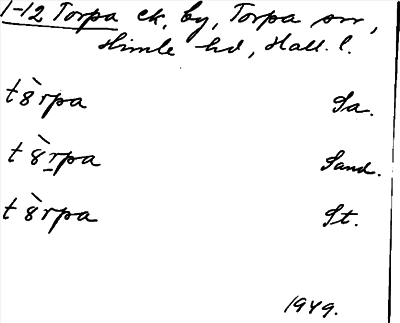 1-12 Torpa ck, by, Torpa sn,
Himle hd, Hall. l.
t8̀rpa Sa.
t8̀rpa Sand.
t8̀rpa St.
1949.